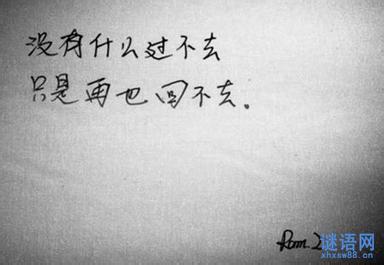 没有什么过不去
只是再也回不去。
谜语网
xhxsw88.cn